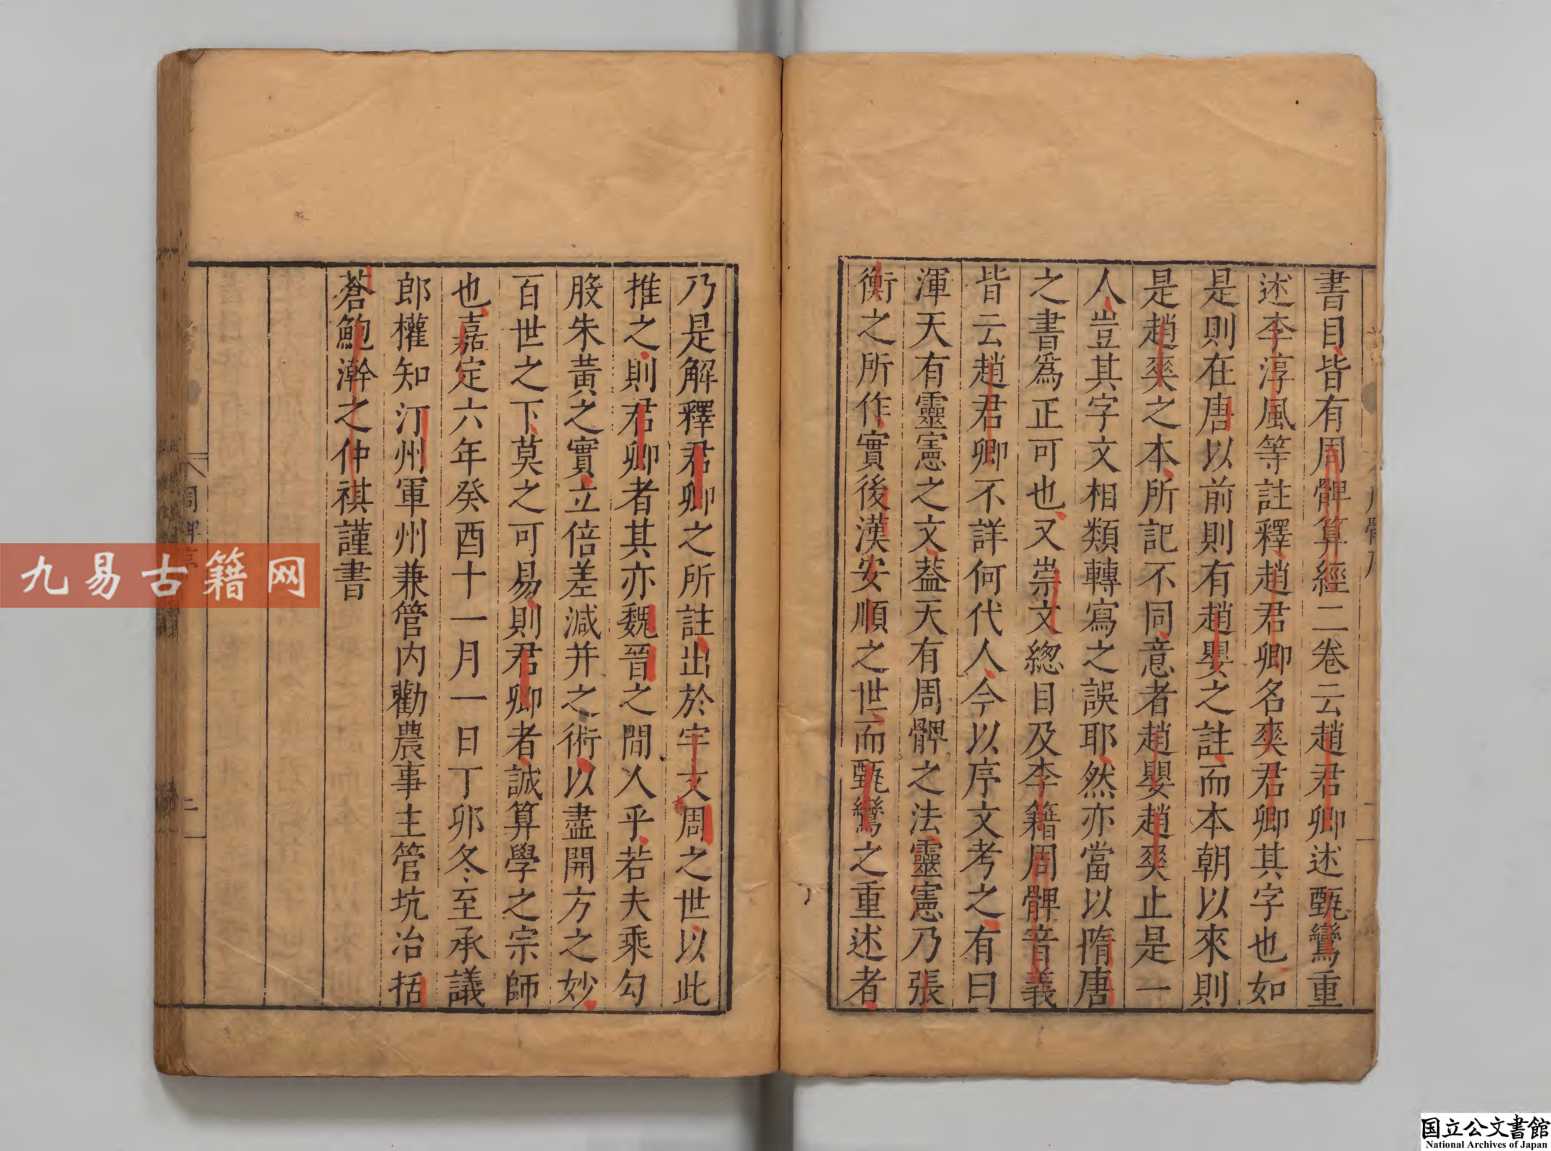 書目皆有周髀算經二卷云趙君卿述甄鸞重
述李淳風等註釋趙君卿名爽君卿其字也如
是則在唐以前則有趙嬰之註而本朝以來則
是趙爽之本所記不同意者趙嬰趙爽止是一
人豈其字文相類轉寫之誤耶然亦當以隋唐
之書爲正可也又崇文總目及李籍周髀音義
皆云趙君卿不詳何代人今以序文考之有曰
渾天有靈憲之文葢天有周髀之法靈憲乃張
衡之所作實後漢安順之世而甄鸞之重述者
乃是解釋君卿之所註出於宇文周之世以此
推之則君卿者其亦魏晉之間人乎若夫乘勾
股朱黃之實立倍差減并之術以盡開方之妙
百世之下莫之可易則君卿者誠算學之宗師
也嘉定六年癸酉十一月一日丁卯冬至承議
郎權知汀州軍州兼管内勸農事主管坑冶括
蒼鮑澣之仲祺謹書
九易古籍网
国立公文書館
National Archives of Japan